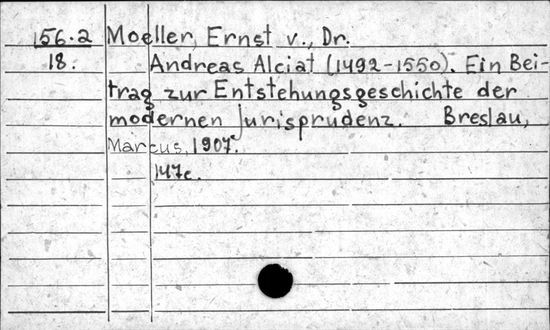 156.2 Moeller, Ernst v., Dr.
18. Andreas Alciat (1492-1550). Ein Bei-
trag zur Entstehungsgeschichte der
modernen Jurisprudenz. Breslau,
Marcus, 1907.
147c.